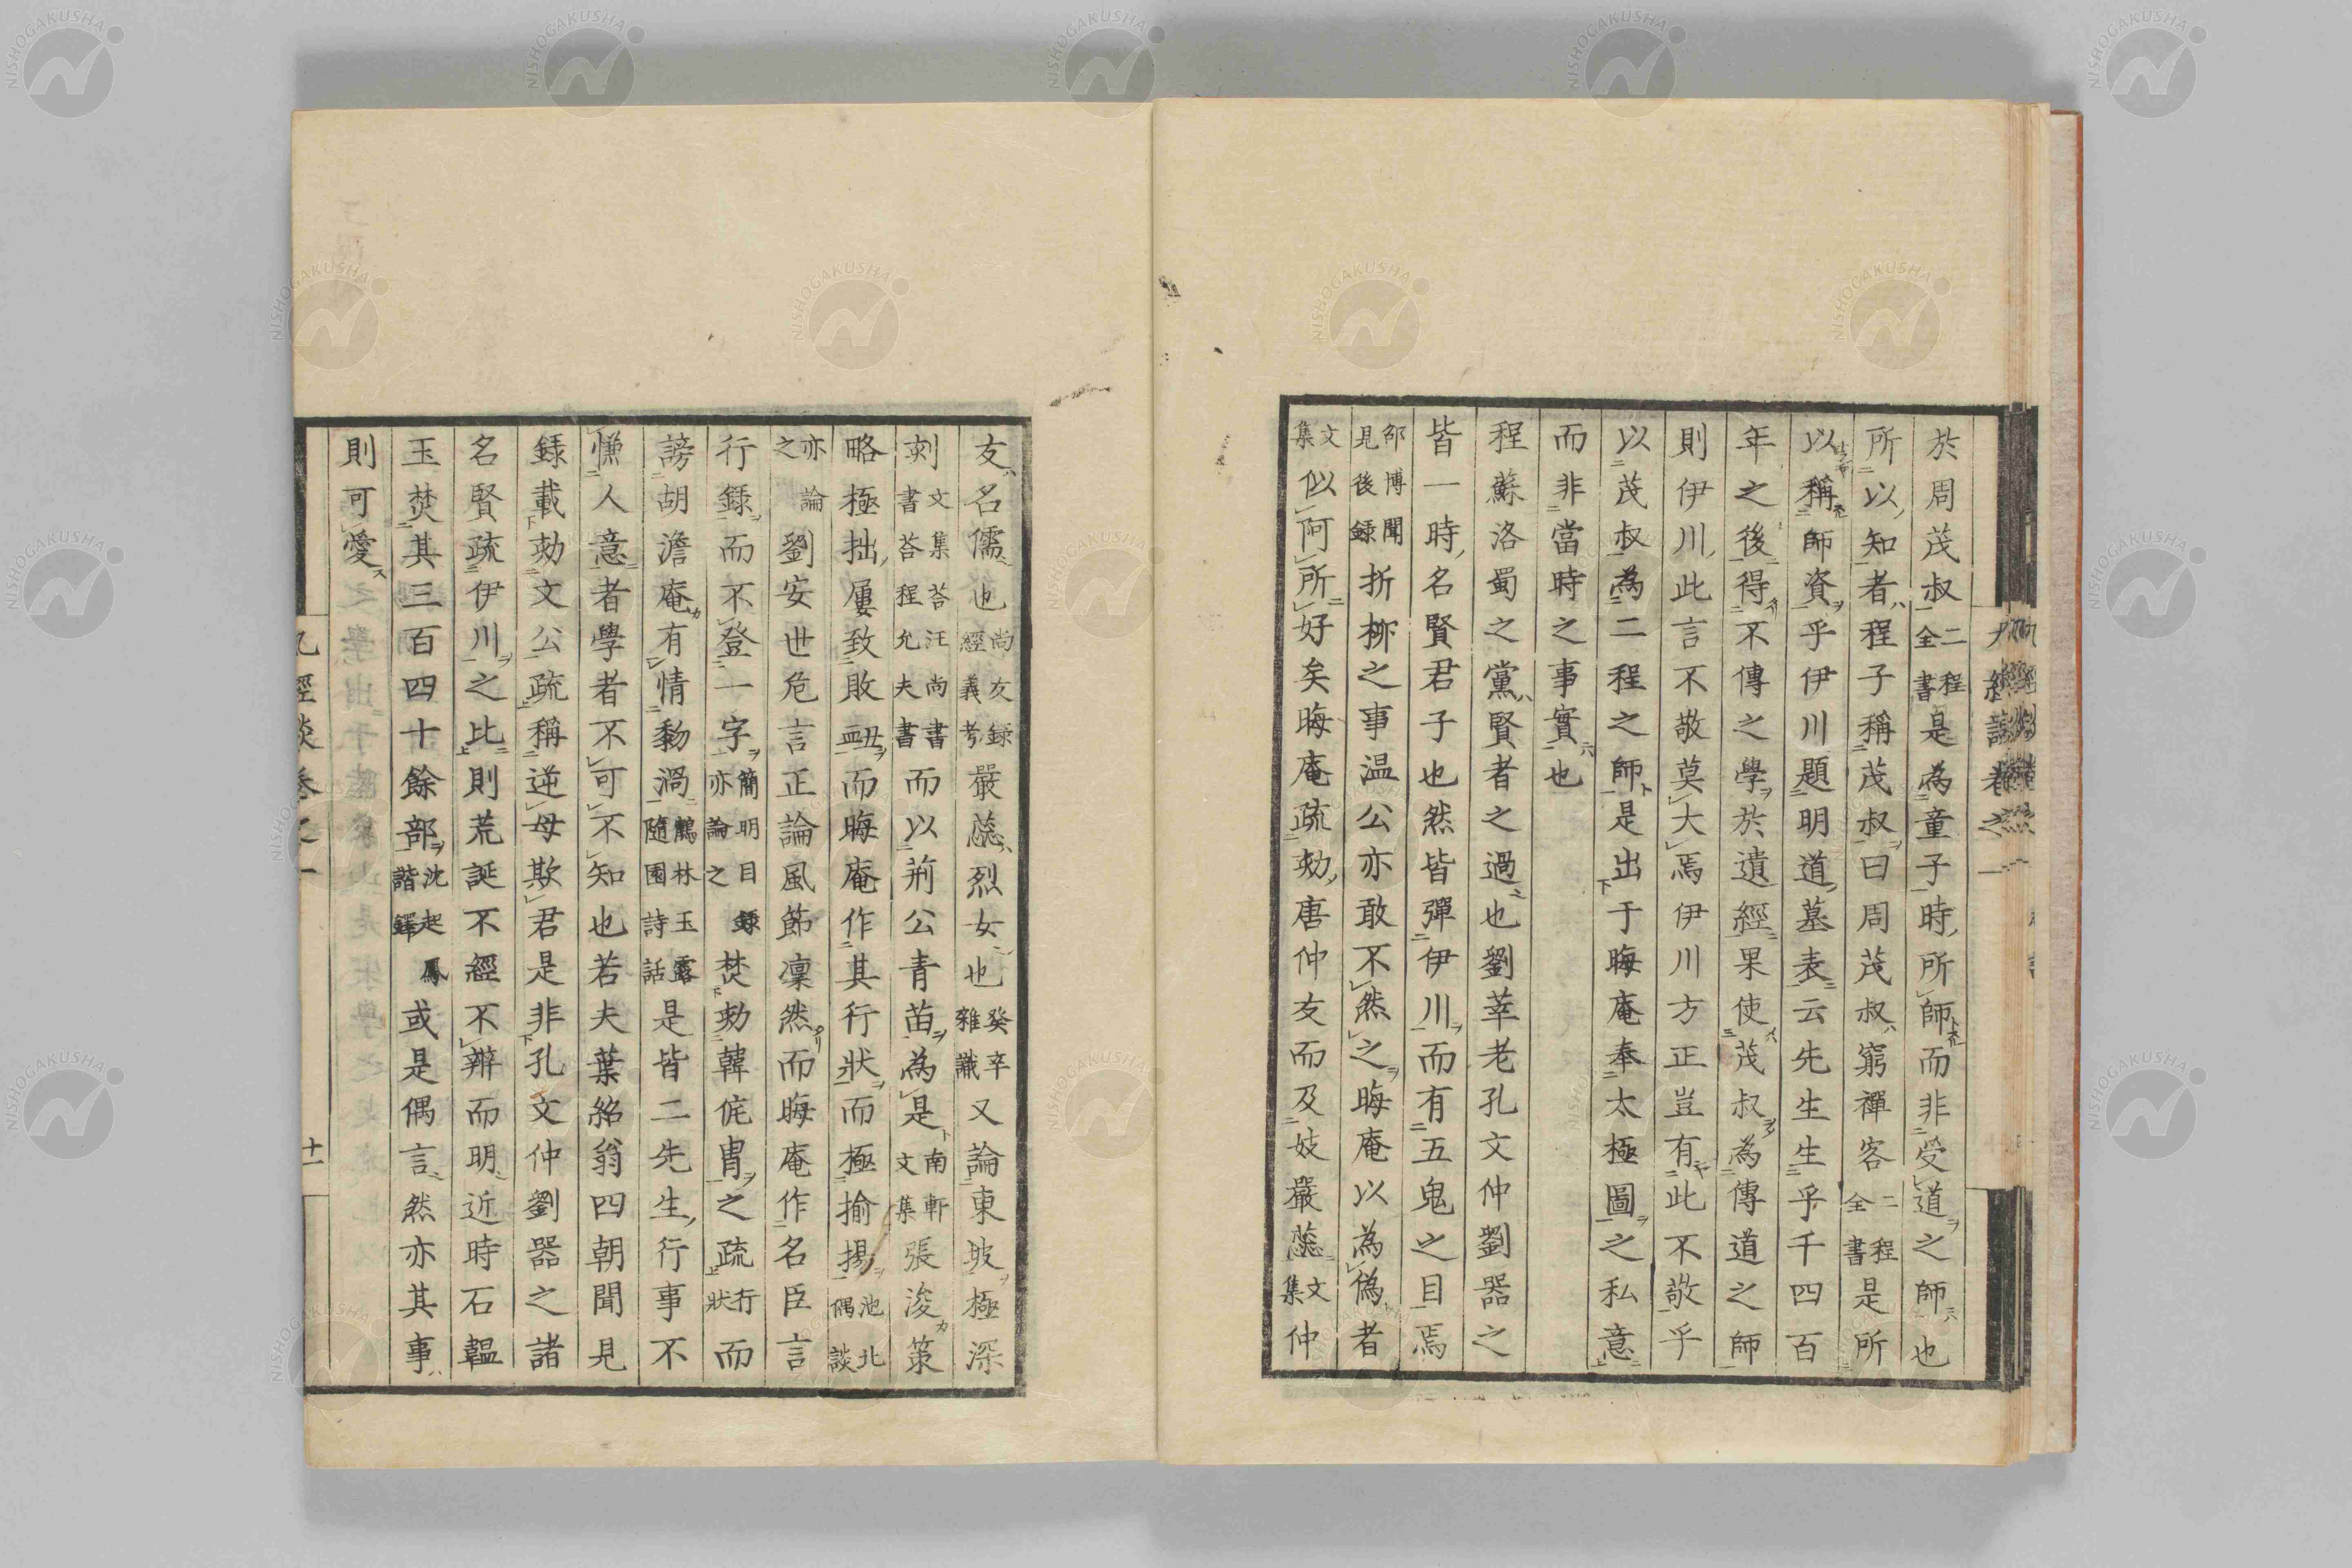 於周茂叔二程全書是為童子時所師而非受道之師也
所以知者程子稱茂叔曰周茂叔窮禪客二程全書是所
以稱師資乎伊川題明道墓表云先生生乎千四百
年之後得不傳之學於遺經果使茂叔為傳道之師
則伊川此言不敬莫大焉伊川方正豈有此不敬乎
以茂叔為二程之師是出于晦庵奉太極圖之私意
而非當時之事實也
程蘇洛蜀之黨賢者之過也劉莘老孔文仲劉器之
皆一時名賢君子也然皆彈伊川而有五鬼之目焉
邵博聞見後錄折柳之事温公亦敢不然之晦庵以為偽者
文集似阿所好矣晦庵疏劾唐仲友而及妓嚴蕊文集仲
友名儒也尚友錄經義考嚴蕊烈女也癸辛雜識又論東坡極深
刻文集荅汪尚書書荅程允夫書而以荊公青苗為是南軒文集張浚策
略極拙屢致敗衄而晦庵作其行狀而極揄揚池北偶談
亦論之劉安世危言正論風節凜然而晦庵作名臣言
行錄而不登一字簡明目錄亦論之焚劾韓侂胄之疏行狀而
謗胡澹庵有情黎渦鶴林玉露隨園詩話是皆二先生行事不
慊人意者學者不可不知也若夫葉紹翁四朝聞見
錄載劾文公疏稱逆母欺君是非孔文仲劉器之諸
名賢疏伊川之比則荒誕不經不辨而明近時石韞
玉焚其三百四十餘部沈起鳳諧鐸或是偶言然亦其事
則可愛
九經談卷之一
十一
NISHOGAKUSHA